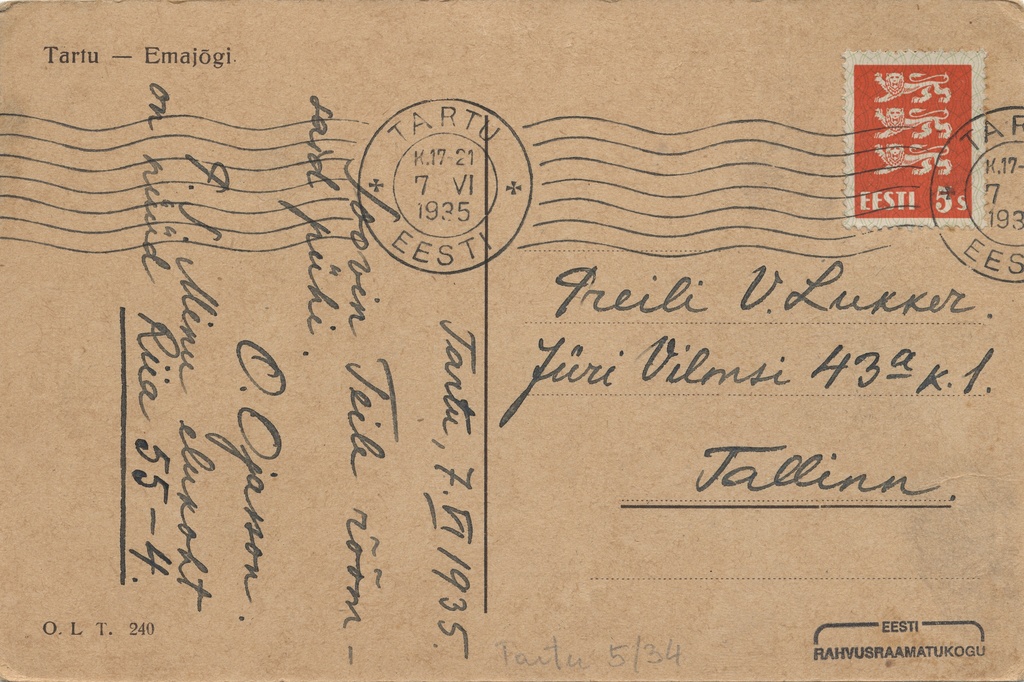 Tartu — Emajõgi.
TARTU
K.17-21
7 VI
1935
EESTI
EESTI 5 s
TAR
K.17-
7
193
EES
Tartu, 7. VI 1935.
Soovin Teile rõõm-
said pühi.
O. Ojasson.
P. S. Minu elukoht
on nüüd Riia 55-4.
Preili V. Lukker.
Jüri Vilmsi 43a k. 1.
Tallinn.
O. L. T. 240
Tartu 5/34
EESTI
RAHVUSRAAMATUKOGU